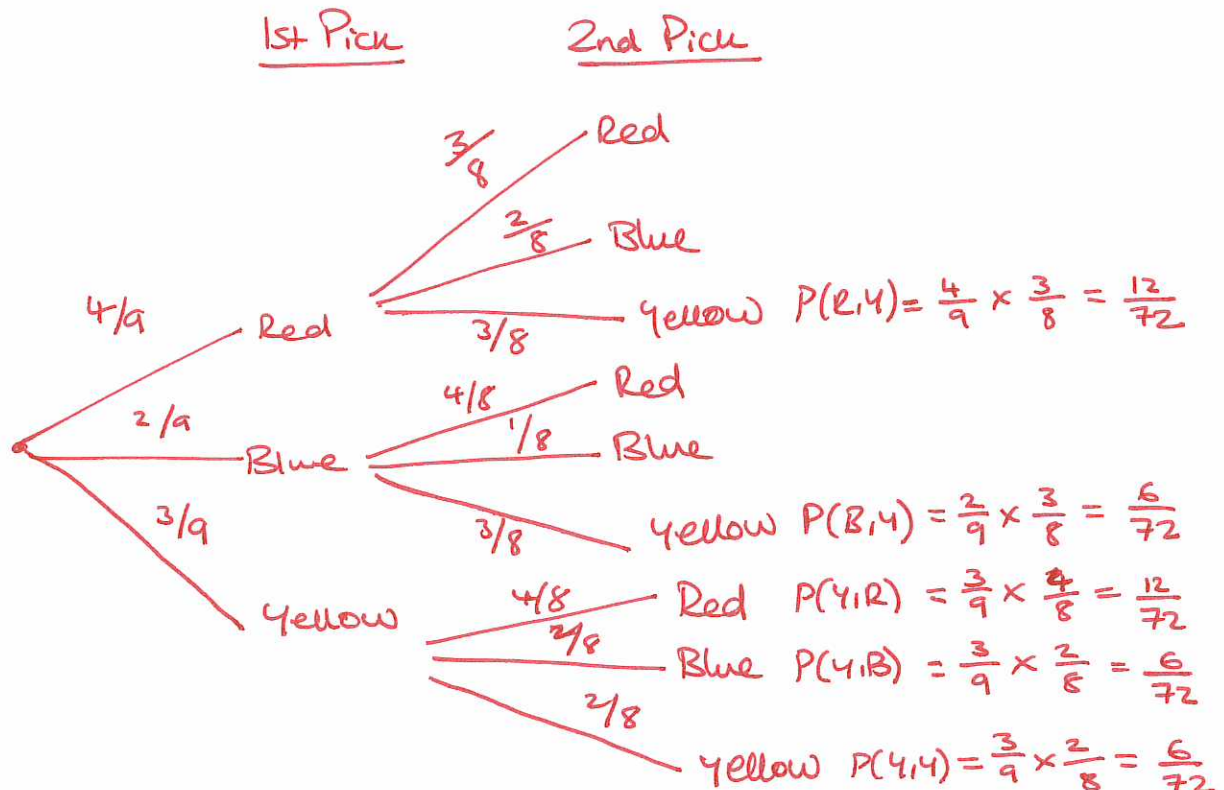 1st Pick 2nd Pick
3/8 Red
2/8 Blue
4/9 Red 3/8 Yellow P(R,Y) = 4/9 × 3/8 = 12/72
4/8 Red
2/9 Blue 1/8 Blue
3/9 3/8 Yellow P(B,Y) = 2/9 × 3/8 = 6/72
Yellow 4/8 Red P(Y,R) = 3/9 × 4/8 = 12/72
2/8 Blue P(Y,B) = 3/9 × 2/8 = 6/72
2/8 Yellow P(Y,Y) = 3/9 × 2/8 = 6/72